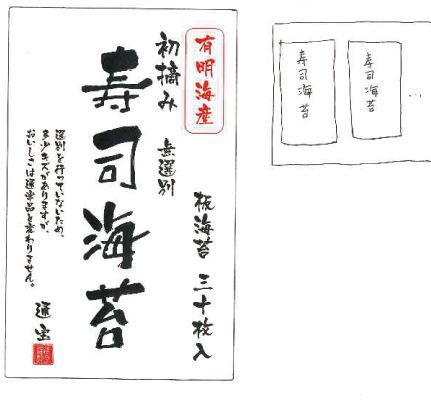 有明海産
初摘み
無選別
寿司海苔
板海苔 三十枚入
選別を行っていないため、
多少キズがありますが、
おいしさは通常品と変わりません。
通宝
寿司海苔
寿司海苔
…